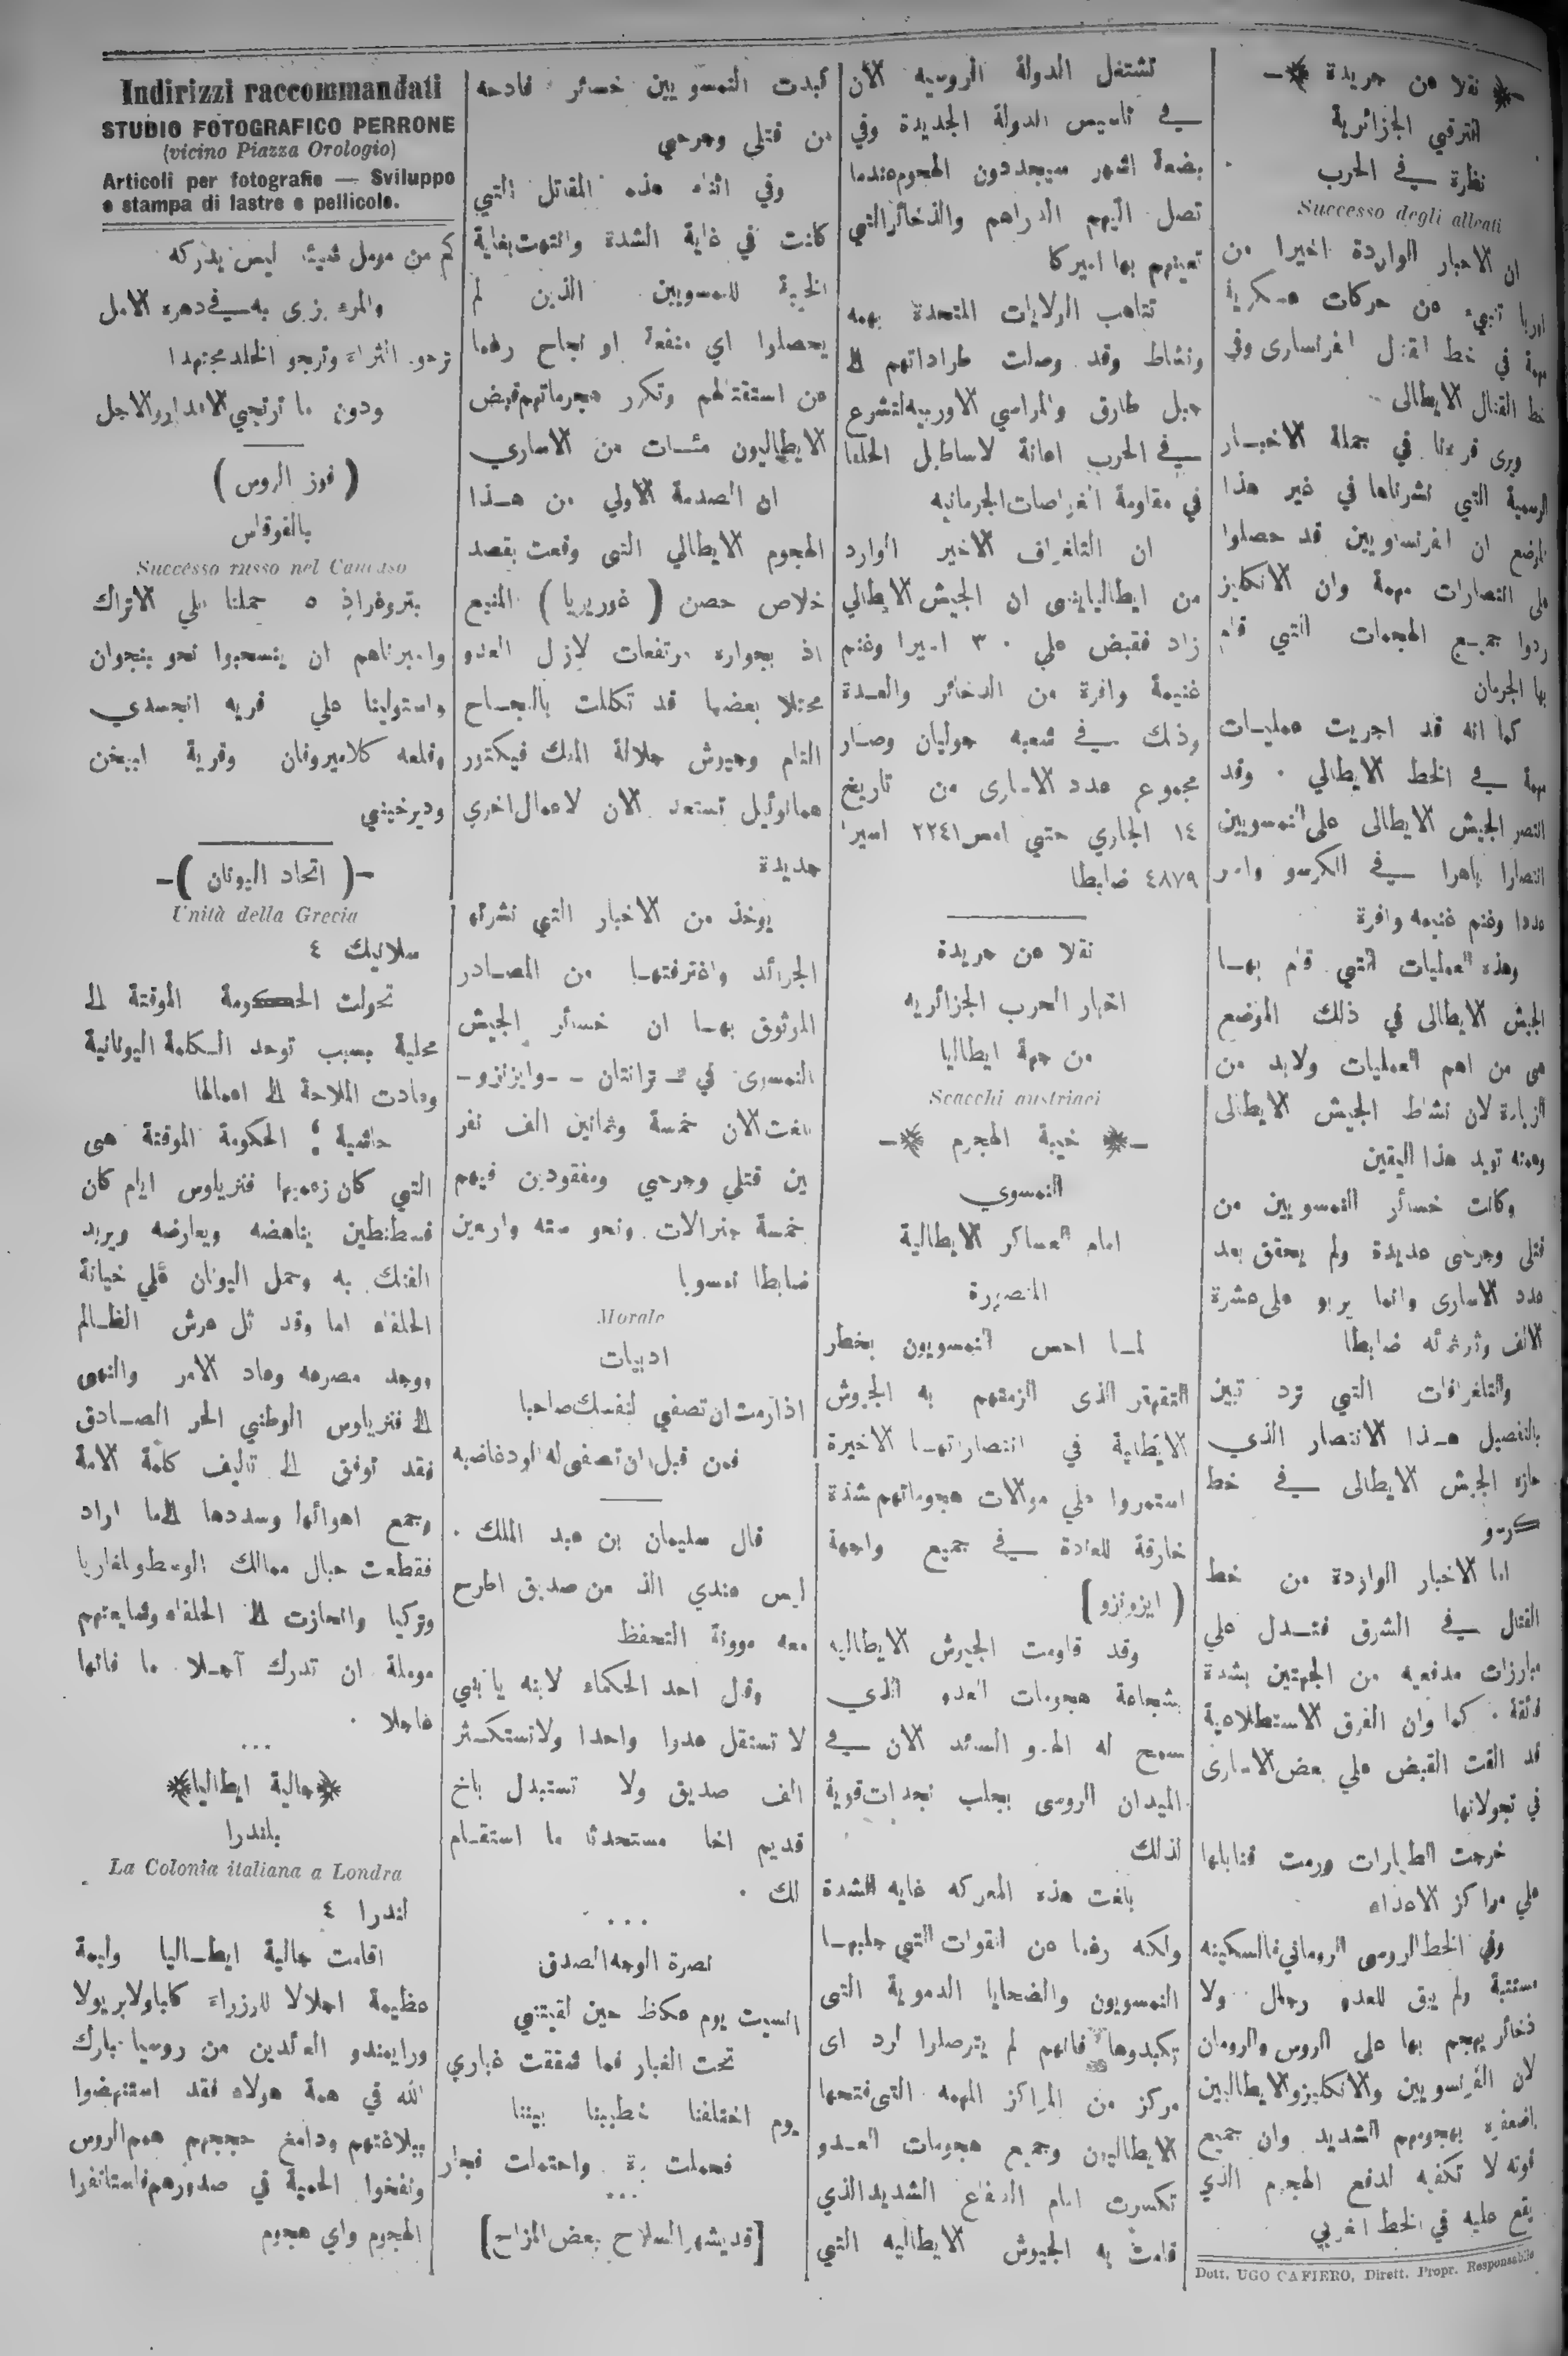 نقلا عن جريدة
الترقي الجزائرية
نظرة في الحرب
Successo degli alleati
ان الاخبار الواردة اخيرا من
اوربا تنبيء عن حركات عسكرية
مهمة في خط القتال الفرنساوى وفي
خط القتال الايطالى
ويرى قرءنا في جملة الاخبار
الرسمية التي نشرناها في غير هذا
الموضع ان الفرنساويين قد حصلوا
على انتصارات مهمة وان الانكليز
ردوا جميع الهجمات التي قام
بها الجرمان
كما انه قد اجريت عمليات
مهمة في الخط الايطالي . وقد
انتصر الجيش الايطالى على النمسويين
انتصارا باهرا في الكرسو واسر
عددا وغنم غنيمه وافرة
وهذه العمليات التي قام بها
الجيش الايطالى في ذلك الموضع
هى من اهم العمليات ولابد من
الزيادة لان نشاط الجيش الايطالى
وهمته تويد هذا اليقين
وكانت خسائر النمسويين من
قتلى وجرحى عديدة ولم يحقق بعد
عدد الاسارى وانما يربو على عشرة
الالف وثرثمائه ضابطا
والتلغرافات التي ترد تبين
بالتفصيل هذا الانتصار الذي
حازه الجيش الايطالى في خط
كرسو
اما الاخبار الواردة من خط
القتال في الشرق فتدل علي
مبارزات مدفعيه من الجهتين بشدة
فائقة . كما وان الفرق الاستطلاعية
قد القت القبض علي بعض الاسارى
في تجولاتها
خرجت الطيارات ورمت قنابلها
علي مراكز الاعداء
وفي الخط الروسى الروماني فالسكينه
مستتبة ولم يبق للعدو رجال ولا
ذخائر يهجم بها على الروس والرومان
لان الفرنسويين والانكليز والايطاليين
اضعفوه بهجومهم الشديد وان جميع
قوته لا تكفيه لدفع الهجوم الذي
يقع عليه في الخط الغربي
Dott. UGO CAFIERO, Dirett. Propr. Responsabile
تشتغل الدولة الروسيه الآن
في تاسيس الدولة الجديدة وفي
بضعة اشهر سيجددون الهجوم عندما
تصل اليهم الدراهم والذخائر التي
تعينهم بها اميركا
تتاهب الولايات المتحدة بهمه
ونشاط وقد وصلت طراداتهم الى
جبل طارق والمراسي الاوربيه لتشرع
في الحرب اعانة لاساطيل الحلفا
في مقاومة الغواصات الجرمانيه
ان التلغراف الاخير الوارد
من ايطاليا ينبى ان الجيش الايطالي
زاد فقبض علي ٣٠ اسيرا وغنم
غنيمة وافرة من الدخائر والعدة
وذلك في شعبه جوليان وصار
مجموع عدد الاسارى من تاريخ
١٤ الجاري حتي امس ٢٢٤١ اسيرا
٤٨٧٩ ضابطا
نقلا عن جريدة
اخبار الحرب الجزائريه
من جهة ايطاليا
Scacchi austriaci
خيبة الهجوم
النمسوي
امام العساكر الايطالية
المنصورة
لما احس النمسويون بخطر
التقهقر الذى الزمتهم به الجيوش
الايطالية في انتصاراتها الاخيرة
استمروا علي موالات هجوماتهم شذة
خارقة للعادة في جميع واجهة
( ايزونزو )
وقد قاومت الجيوش الايطاليه
بشجاعة هجومات العدو الذي
سمح له الهدو السائد الان في
الميدان الروسى بجلب نجدات قوية
لذلك
بلغت هذه المعركه غايه الشدة
ولكنه رغما عن القوات التي جلبها
النمسويون والضحايا الدموية التى
تكبدوها فانهم لم يتوصلوا لرد اى
مركز من المراكز المهمه التى فتحها
الايطاليون وجميع هجومات العدو
تكسرت امام الدفاع الشديد الذي
قامت به الجيوش الايطاليه التي
كبدت النمسويين خسائر فادحه
من قتلي وجرحي
وفي اثناء هذه المقاتل التي
كانت في غاية الشدة وانتهت بغاية
الخيبة للنمسويين الذين لم
يحصلوا اي منفعة او نجاح رغما
عن استقتالهم وتكرر هجوماتهم قبض
الايطاليون مئات من الاساري
ان الصدمة الاولي من هذا
الهجوم الايطالي التى وقعت بقصد
خلاص حصن ( غوريريا ) المنيع
اذ بجواره مرتفعات لازل العدو
محتلا بعضها قد تكللت بالنجاح
التام وجيوش جلالة الملك فيكتور
عمانوئيل تستعد الان لاعمال اخري
جديدة
يوخذ من الاخبار التي نشرتها
الجرائد واغترفتها من المصادر
الموثوق بها ان خسائر الجيش
النمسوى في ـ ترانتان ـ ـ وايزنزو ـ
بلغت الان خمسة وثمانين الف نفر
بين قتلي وجرحي ومفقودين فيهم
خمسة جنرالات ونحو سته واربعين
ضابطا نمسويا
Morale
ادبيات
اذا رمت ان تصفي لنفسك صاحبا
فمن قبل ان تصفى له الود غاضبه
قال سليمان بن عبد الملك .
ليس عندي الذ من صديق اطرح
معه موونة التحفظ
وقال احد الحكماء لابنه يا بني
لا تستقل عدوا واحدا ولا تستكثر
الف صديق ولا تستبدل باخ
قديم اخا مستحدثا ما استقام
لك .
...
نصرة الوجه الصدق
السيت يوم عكاظ حين لقيتني
تحت الغبار فما شققت غباري
يوم اختلفنا خطيبنا بيننا
فحملت برة واحتملت فجار
...
[ قد يشهر السلاح بعض المزاح ]
Indirizzi raccommandati
STUDIO FOTOGRAFICO PERRONE
(vicino Piazza Orologio)
Articoli per fotografie — Sviluppo
e stampa di lastre e pellicole.
كم من مومل شيئا ليس يدركه
والمرء يزرى به في دهره الامل
ترجو الثراء وترجو الخلد مجتهدا
ودون ما ترتجي الاقدار والاجل
( فوز الروس )
بالقوقاس
Successo russo nel Caucaso
بتروغراد ٥ حملنا علي الاتراك
واجبرناهم ان ينسحبوا نحو بنجوان
واستولينا علي قريه انجمدي
وقلعه كلاميروفان وقرية ابيخن
وديرخيني
-( اتحاد اليونان )-
Unità della Grecia
سلانيك ٤
تحولت الحكومة الموقتة الى
محلية بسبب توحد الكلمة اليونانية
وعادت الملاحة الى اعمالها
حاشية : الحكومة الموقتة هى
التي كان زعيمها فنزيلوس ايام كان
قسطنطين يناهضه ويعارضه ويريد
الفتك به وحمل اليونان علي خيانة
الحلفاء اما وقد ثل عرش الظالم
ووجد مصرعه وعاد الامر والنهى
الى فنزيلوس الوطني الحر الصادق
فقد توفق الى تاليف كلمة الامة
وجمع اهوائها وسددها الى ما اراد
فقطعت حبال ممالك الوسط وبلغاريا
وتركيا وانحازت الى الحلفاء وشايعتهم
موملة ان تدرك آجلا ما فاتها
عاجلا .
...
جالية ايطاليا
بلندرا
La Colonia italiana a Londra
لندرا ٤
اقامت جالية ايطاليا وليمة
عظيمة اجلالا للوزراء كاباولا بريولا
ورايمندو العائدين من روسيا بارك
الله في همة هولاء فقد استنهضوا
ببلاغتهم ودامغ حججهم همم الروس
ونفخوا الحمية في صدورهم فاستانفوا
الهجوم واي هجوم